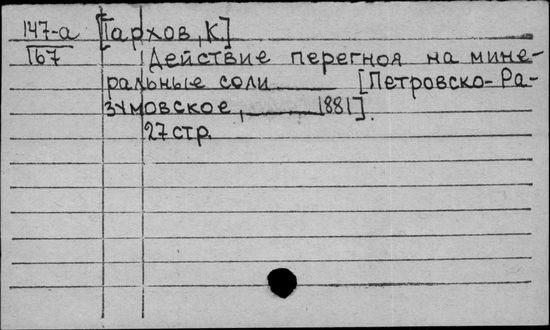 147-а [Гархов, К.]
167 Действие перегноя на мине-
ральные соли [Петровско-Ра-
зумовское, 1881].
27 стр.